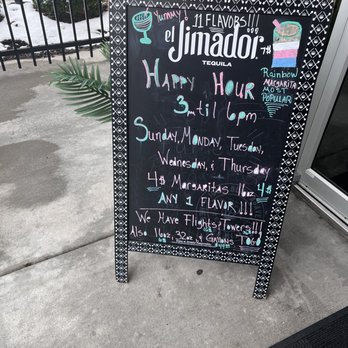 Yummy! 11 FLAVORS!!!
el Jimador.
TEQUILA
7$
Rainbow
MARGARITA
MOST
POPULAR
HAPPY HOUR
3 til 6pm
Sunday, MONDAY, Tuesday,
Wednesday, & Thursday
4$ MARGARITAS 16oz 4$
ANY 1 FLAVOR!!!
We Have Flights & Towers!!!
Also 16oz, 32oz & GALLONS TOGO